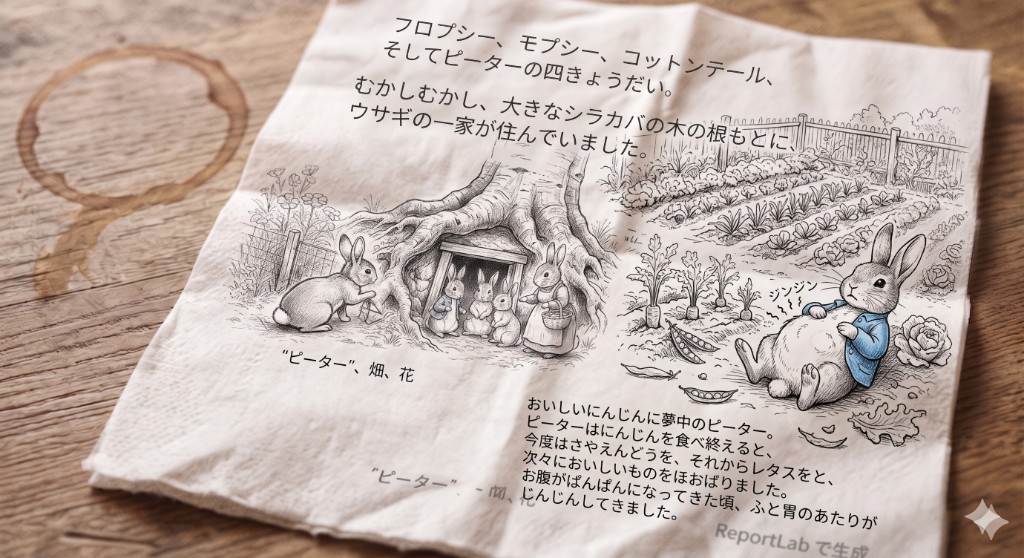 フロプシー、モプシー、コットンテール、
そしてピーターの四きょうだい。
むかしむかし、大きなシラカバの木の根もとに、
ウサギの一家が住んでいました。
ジンジン
"ピーター"、畑、花
おいしいにんじんに夢中のピーター。
ピーターはにんじんを食べ終えると、
今度はさやえんどうを、それからレタスをと、
次々においしいものをほおばりました。
お腹がぱんぱんになってきた頃、ふと胃のあたりが
じんじんしてきました。
"ピーター"、
ReportLab で生成